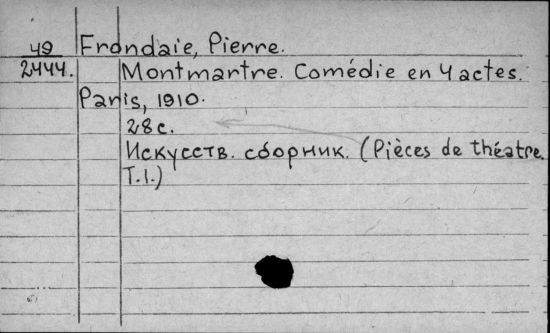 49
2444.
Frondaie, Pierre.
Montmartre. Comédie en 4 actes.
Paris, 1910.
28 с.
Искусств. сборник. (Pièces de théatre.
T.1.)